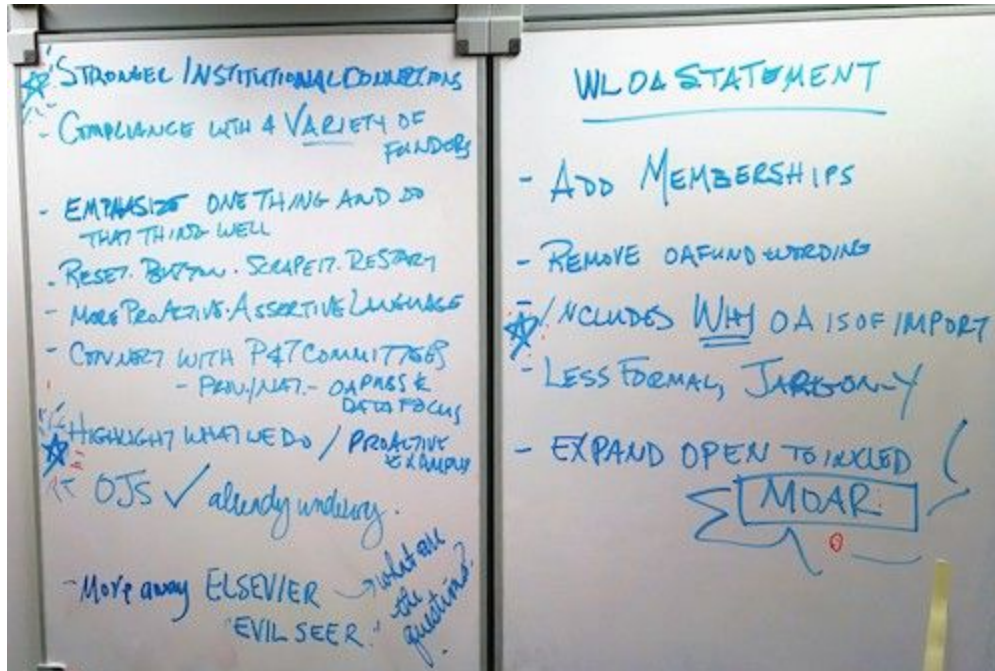 STRONGER INSTITUTIONAL CONNECTIONS
- COMPLIANCE WITH A VARIETY OF
FUNDERS
- EMPHASIZE ONE THING AND DO
THAT THING WELL
- RESET. BUTTON. SCRAPE IT. RESTART
- MORE PROACTIVE. ASSERTIVE LANGUAGE
- CONNECT WITH P&T COMMITTEES
- PROV./NAT. - OA PUBS &
DATA FOCUS
HIGHLIGHT WHAT WE DO / PROACTIVE
EXAMPLE
OJS ✓ already underway.
- Move away ELSEVIER → what are
the
questions?
"EVIL SEER."
WL OA STATEMENT
- ADD MEMBERSHIPS
- REMOVE OA FUND WORDING
- INCLUDES WHY OA IS OF IMPORT
- LESS FORMAL, JARGON-Y
- EXPAND OPEN TO INCLUDE
MOAR.